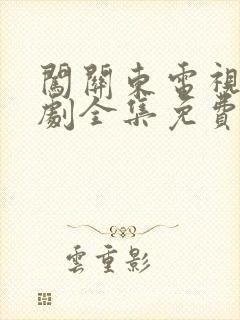 闖關東電視
劇全集免費
雲重影